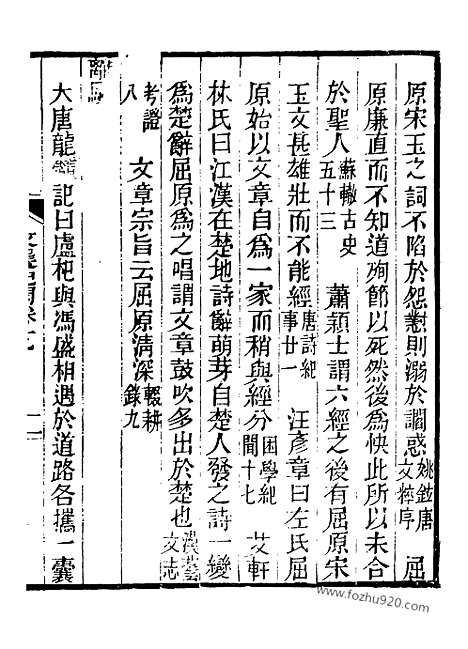 原宋玉之詞不陷於怨懟則溺於讕惑姚鉉唐文粹序　屈
原廉直而不知道殉節以死然後為快此所以未合
於聖人蘇轍古史五十三　蕭穎士謂六經之後有屈原宋
玉文甚雄壯而不能經唐詩紀事廿一　汪彥章曰左氏屈
原始以文章自為一家而稍與經分困學紀聞十七　艾軒
林氏曰江漢在楚地詩辭萌芽自楚人發之詩一變
為楚辭屈原為之唱謂文章鼓吹多出於楚也漢藝文志
考證八　文章宗旨云屈原清深輟耕錄九
大唐龍記曰盧杞與馮盛相遇於道路各攜一囊
www.fozhu920.com